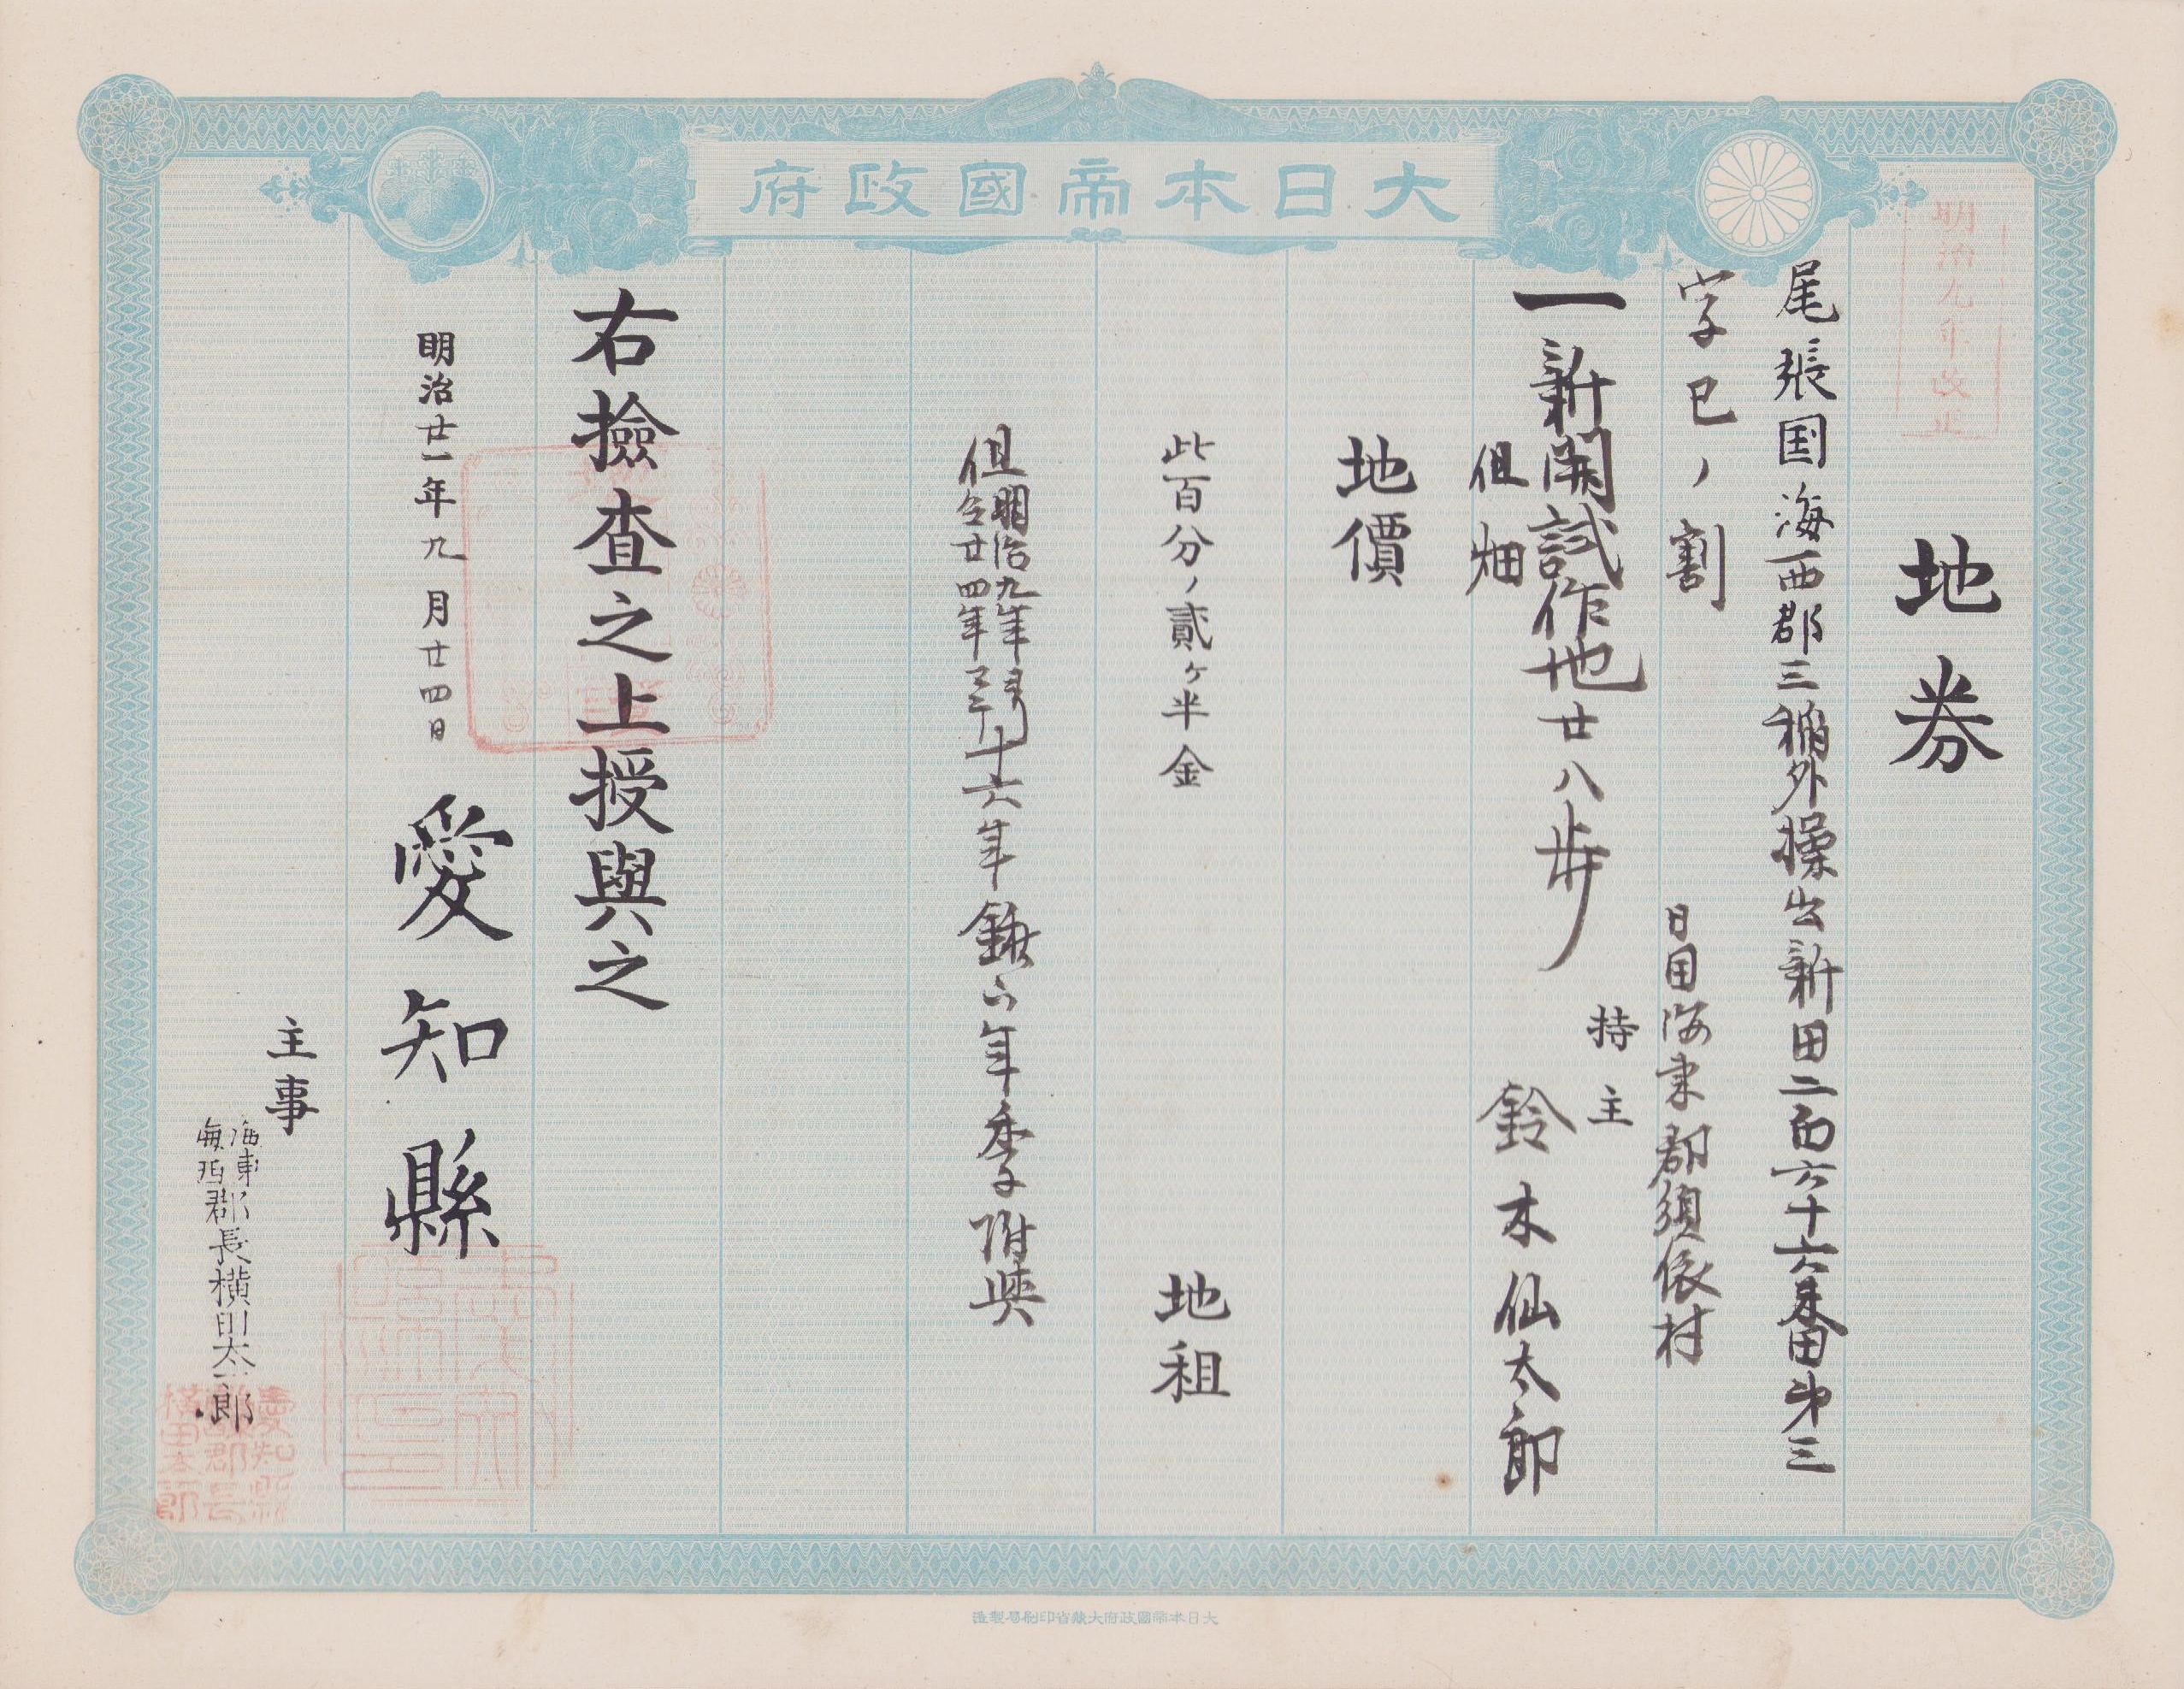 大日本帝國政府
明治九年改正
地券
尾張国海西郡三稲外操出新田二百六十六番田第三
字巳ノ割
日国海東郡須依村
持主
鈴木仙太郎
一新開試作地廿八歩
但畑
地價
此百分ノ貳ヶ半金
地租
但明治九年ヨリ
仝廿四年マテ十六年鍬下年季附與
右撿査之上授與之
明治廿一年九月廿四日
愛知縣
主事
海東
海西郡長横田太郎
愛知縣
郡長
横田太郎
大日本帝國政府大藏省印刷局製造